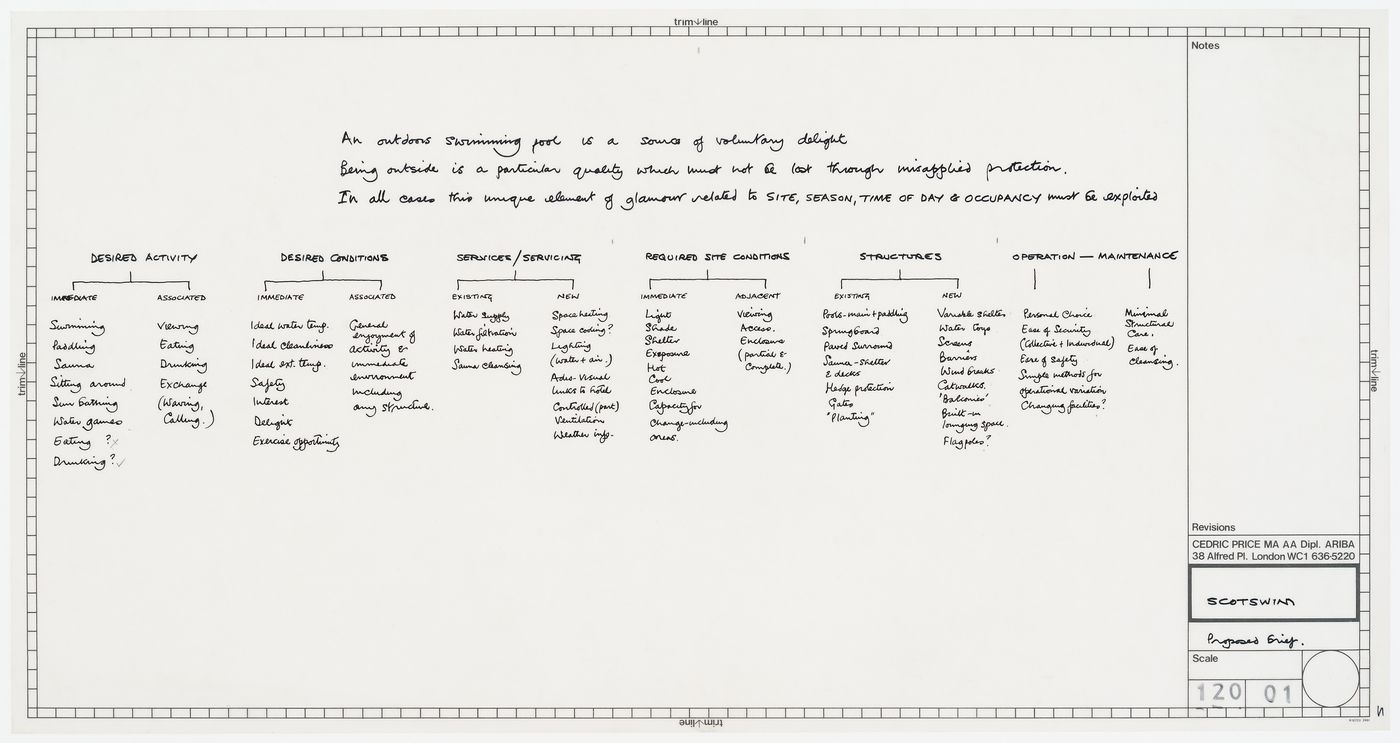 trim line
Notes
An outdoors swimming pool is a source of voluntary delight
Being outside is a particular quality which must not be lost through misapplied protection.
In all cases this unique element of glamour related to SITE, SEASON, TIME OF DAY & OCCUPANCY must be exploited
DESIRED ACTIVITY
IMMEDIATE
Swimming
Paddling
Sauna
Sitting around
Sun bathing
Water games
Eating ?x
Drinking?✓
ASSOCIATED
Viewing
Eating
Drinking
Exchange
(Waving,
Calling.)
DESIRED CONDITIONS
IMMEDIATE
Ideal water temp.
Ideal cleanliness
Ideal ext. temp.
Safety
Interest
Delight
Exercise opportunity
ASSOCIATED
General
enjoyment of
activity &
immediate
environment
including
any structure.
SERVICES/SERVICING
EXISTING
Water supply
Water filtration
Water heating
Sauna cleansing
NEW
Space heating
Space cooling?
Lighting
(water + air.)
Adio-visual
links to hotel
Controlled (part)
Ventilation
Weather info.
REQUIRED SITE CONDITIONS
IMMEDIATE
Light
Shade
Shelter
Exposure
Hot
Cool
Enclosure
Capacity for
change-including
areas.
ADJACENT
Viewing
Access.
Enclosure
(partial &
Complete.)
STRUCTURES
EXISTING
Pools-main+paddling
Springboard
Paved Surround
Sauna-shelter
2 decks
Hedge protection
Gates
"Planting"
NEW
Variable Shelter
Water toys
Screens
Barriers
Wind breaks
Catwalks.
'Balconies'
Built-in
lounging space.
Flagpoles?
OPERATION — MAINTENANCE
Personal Choice
Ease of Security
(Collective + Individual)
Ease of Safety
Simple methods for
operational variation
Changing facilities?
Minimal
Structural
Care.
Ease of
cleansing.
trim line
trim line
Revisions
CEDRIC PRICE MA AA Dipl. ARIBA
38 Alfred Pl. London WC1 636-5220
SCOTSWIM
Proposed Brief.
Scale
120 01
trim line